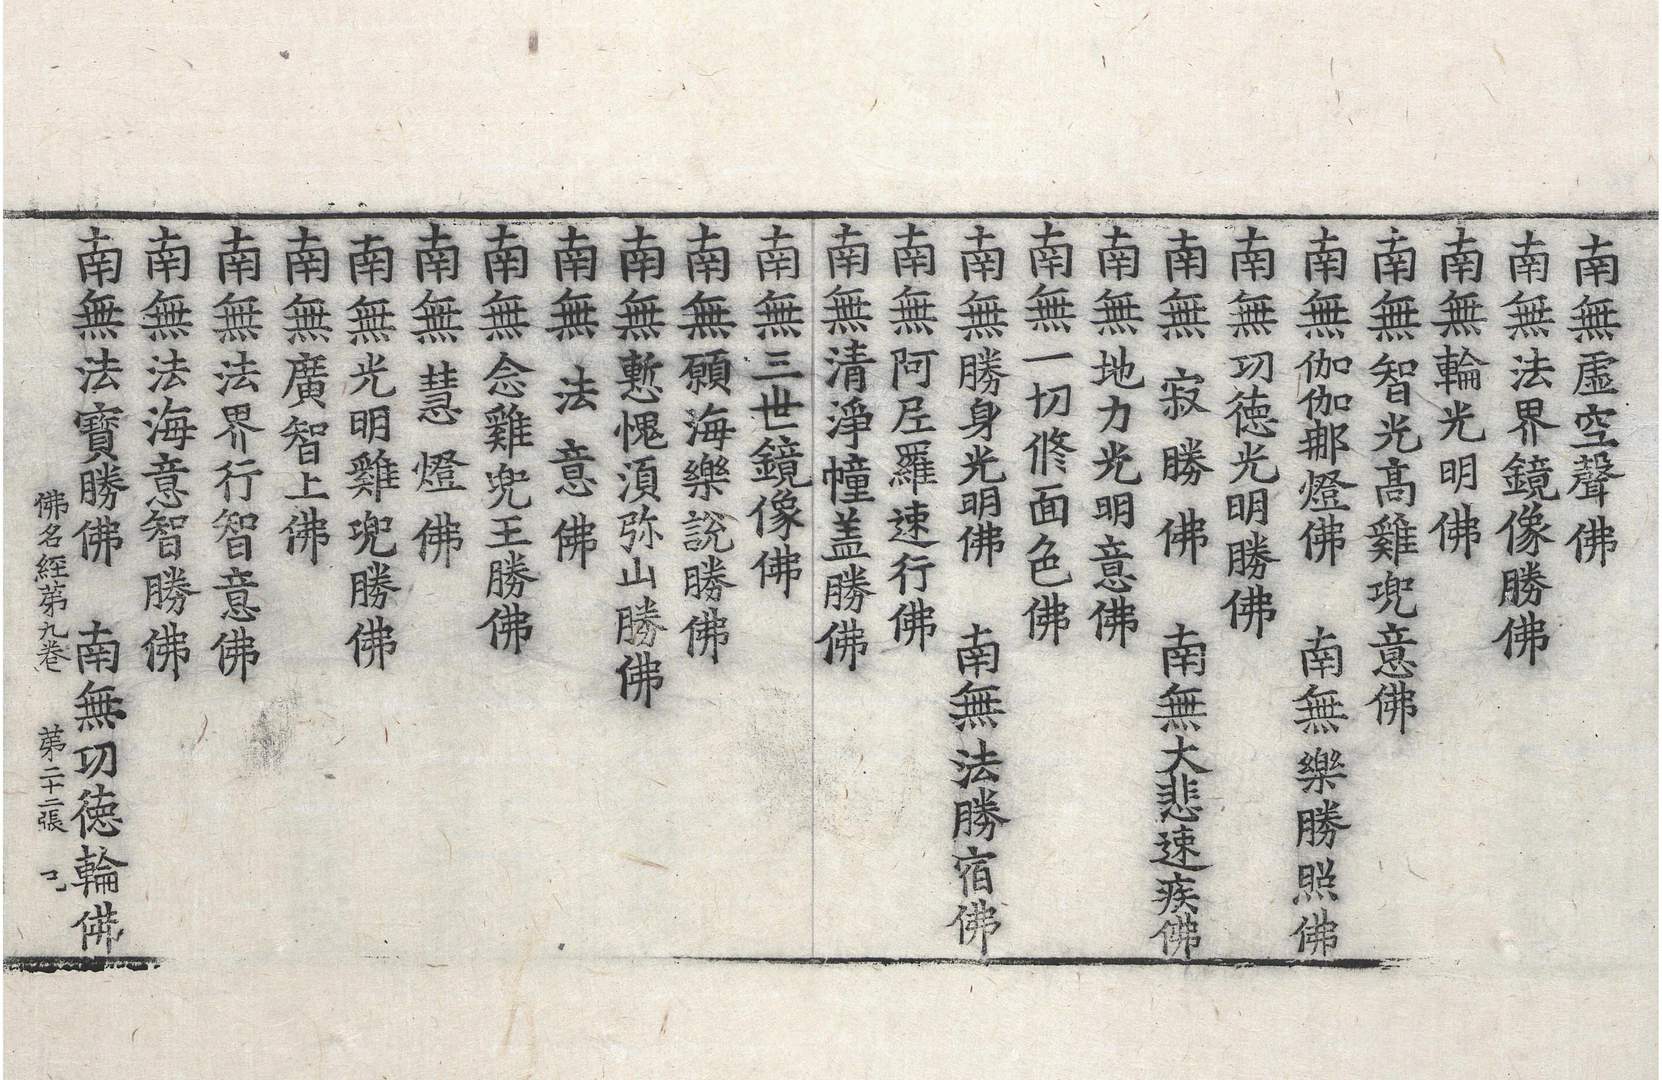 南無虛空聲佛
南無法界鏡像勝佛
南無輪光明佛
南無智光高雞兜意佛
南無伽伽那燈佛 南無樂勝照佛
南無功徳光明勝佛
南無寂勝佛 南無大悲速疾佛
南無地力光明意佛
南無一切修面色佛
南無勝身光明佛 南無法勝宿佛
南無阿尼羅速行佛
南無清淨幢蓋勝佛
南無三世鏡像佛
南無願海樂說勝佛
南無慙愧湏弥山勝佛
南無法意佛
南無念雞兜王勝佛
南無慧燈佛
南無光明雞兜勝佛
南無廣智上佛
南無法界行智意佛
南無法海意智勝佛
南無法寶勝佛 南無功徳輪佛
佛名經苐九卷 苐二十二張